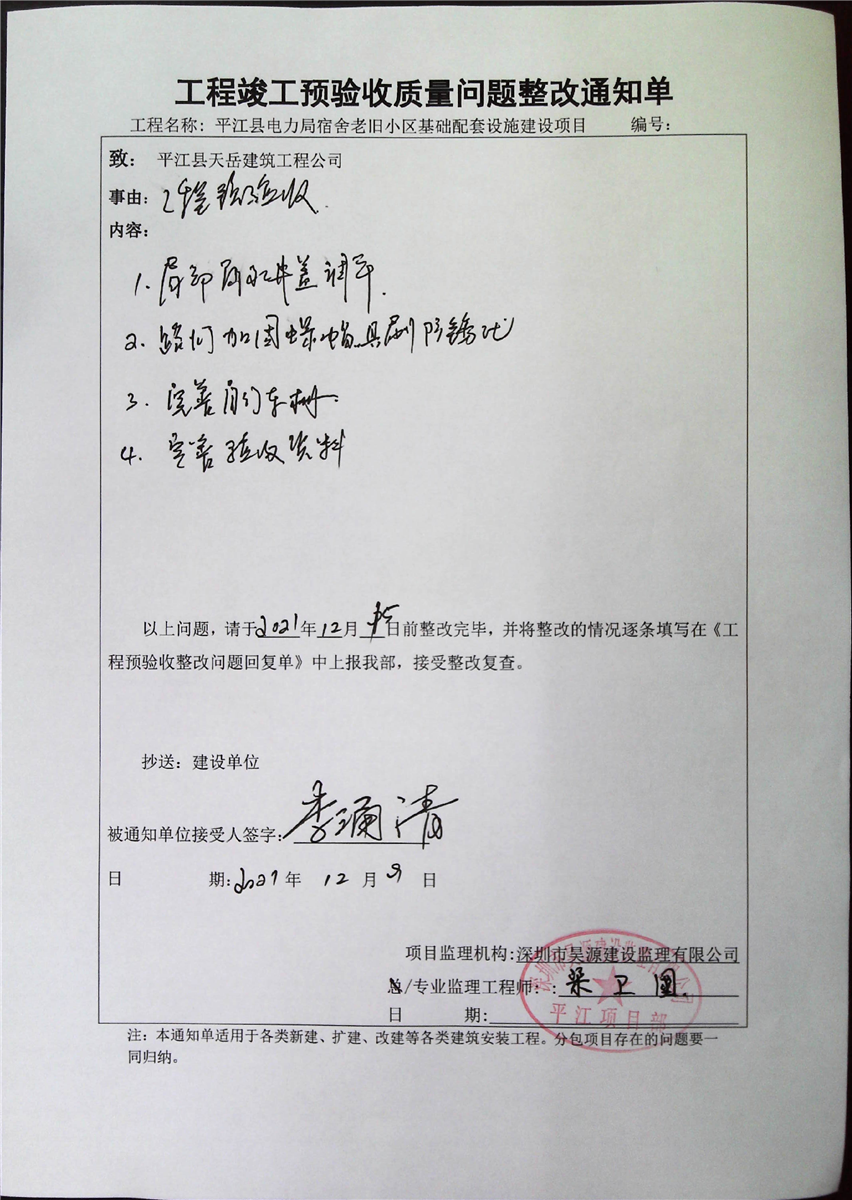 工程竣工预验收质量问题整改通知单
工程名称：平江县电力局宿舍老旧小区基础配套设施建设项目 编号：
致： 平江县天岳建筑工程公司
事由：工程预验收.
内容：
1. 局部雨水井盖调平.
2. 路灯加固螺帽 刷防锈
3. 完善自行车棚.
4. 完善验收资料
以上问题，请于2021年12月15日前整改完毕，并将整改的情况逐条填写在《工
程预验收整改问题回复单》中上报我部，接受整改复查。
抄送：建设单位
被通知单位接受人签字：李 清
日 期：2021年 12 月 9 日
项目监理机构：深圳市昊源建设监理有限公司
总/专业监理工程师：：梁卫国.
日 期：
深圳市昊源建设监理有限公司
平江项目部
注：本通知单适用于各类新建、扩建、改建等各类建筑安装工程。分包项目存在的问题要一
同归纳。